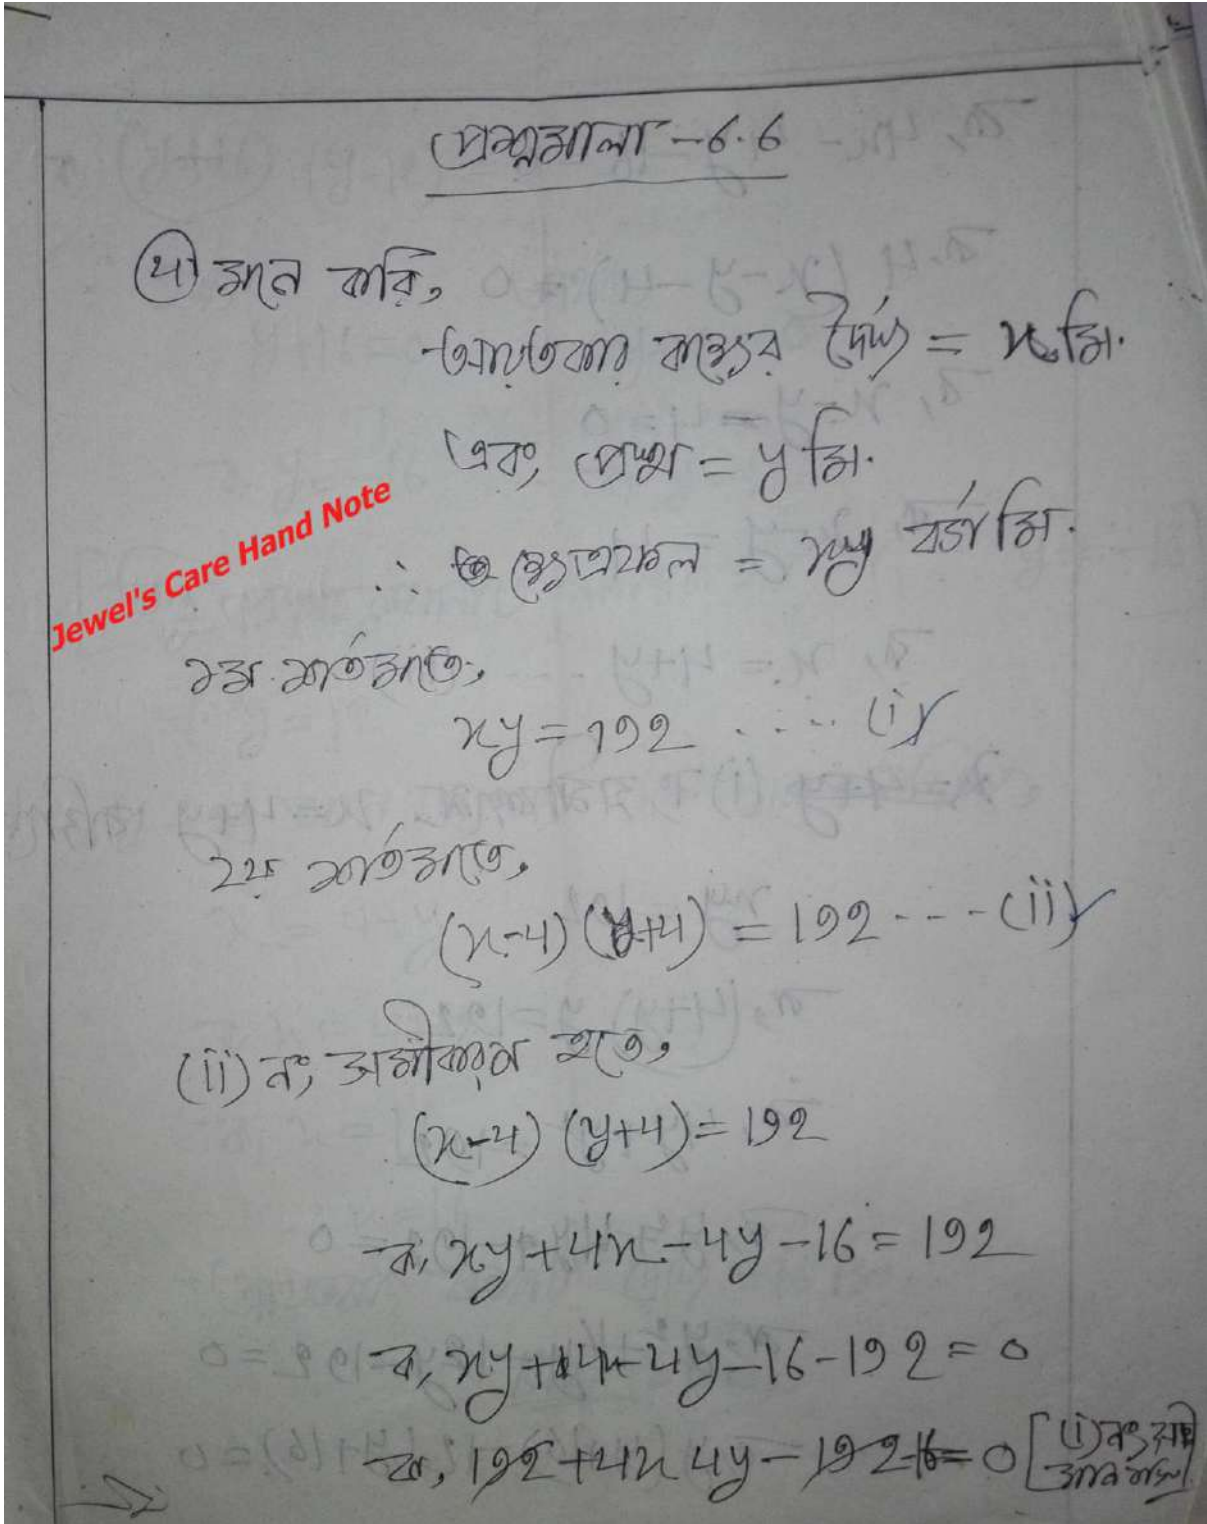 প্রশ্নমালা - ৬.৬
মনে করি,
আয়তকার কক্ষের দৈর্ঘ্য = x মি.
এবং, প্রস্থ = y মি.
Jewel's Care Hand Note
∴ ক্ষেত্রফল = xy বর্গ মি.
১ম শর্তমতে,
xy = 192 ..... (i)
২য় শর্তমতে,
(x-4) (y+4) = 192 --- (ii)
(ii) নং, সমীকরণ হতে,
(x-4) (y+4) = 192
বা, xy + 4x - 4y - 16 = 192
বা, xy + 4x - 4y - 16 - 192 = 0
বা, 192 + 4x 4y - 192 - 16 = 0 [(i) নং